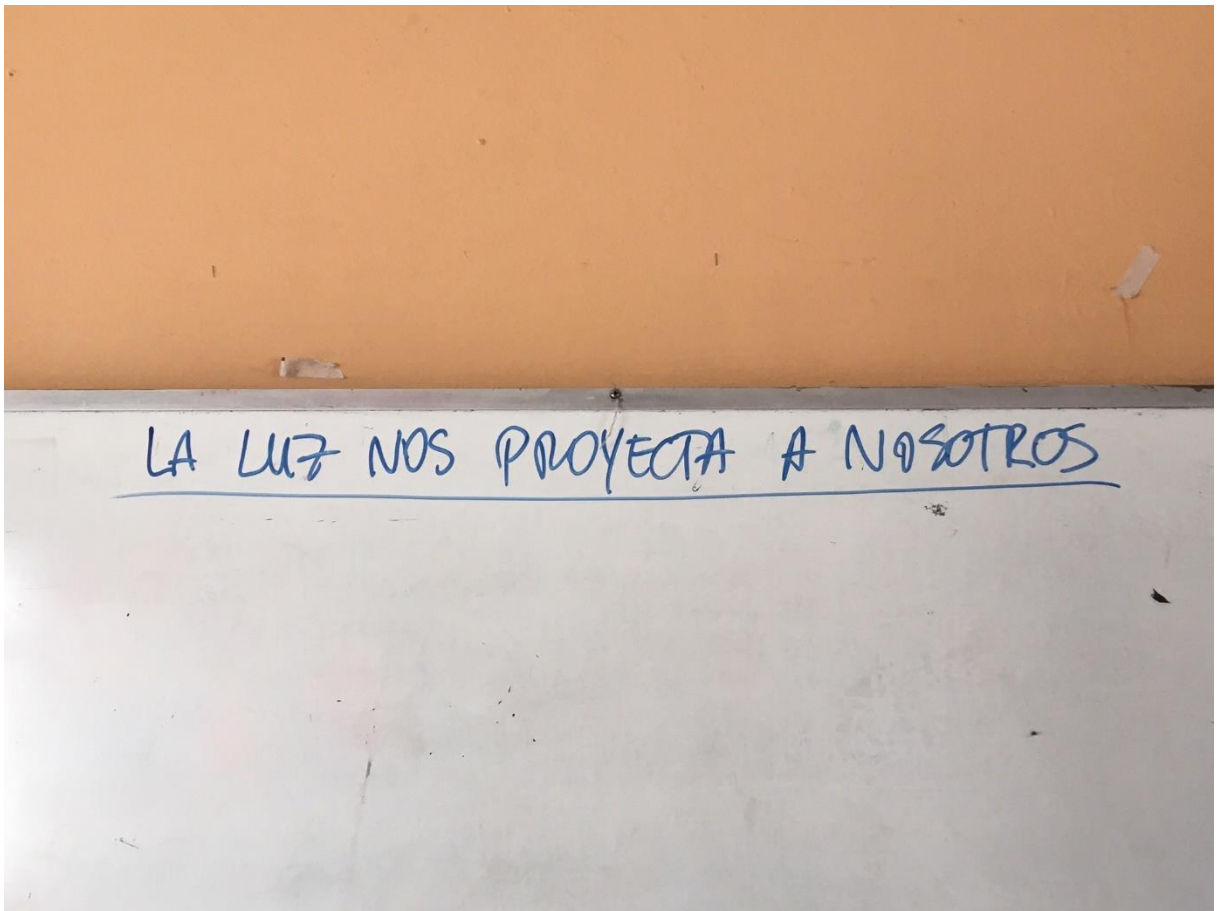 LA LUZ NOS PROYECTA A NOSOTROS